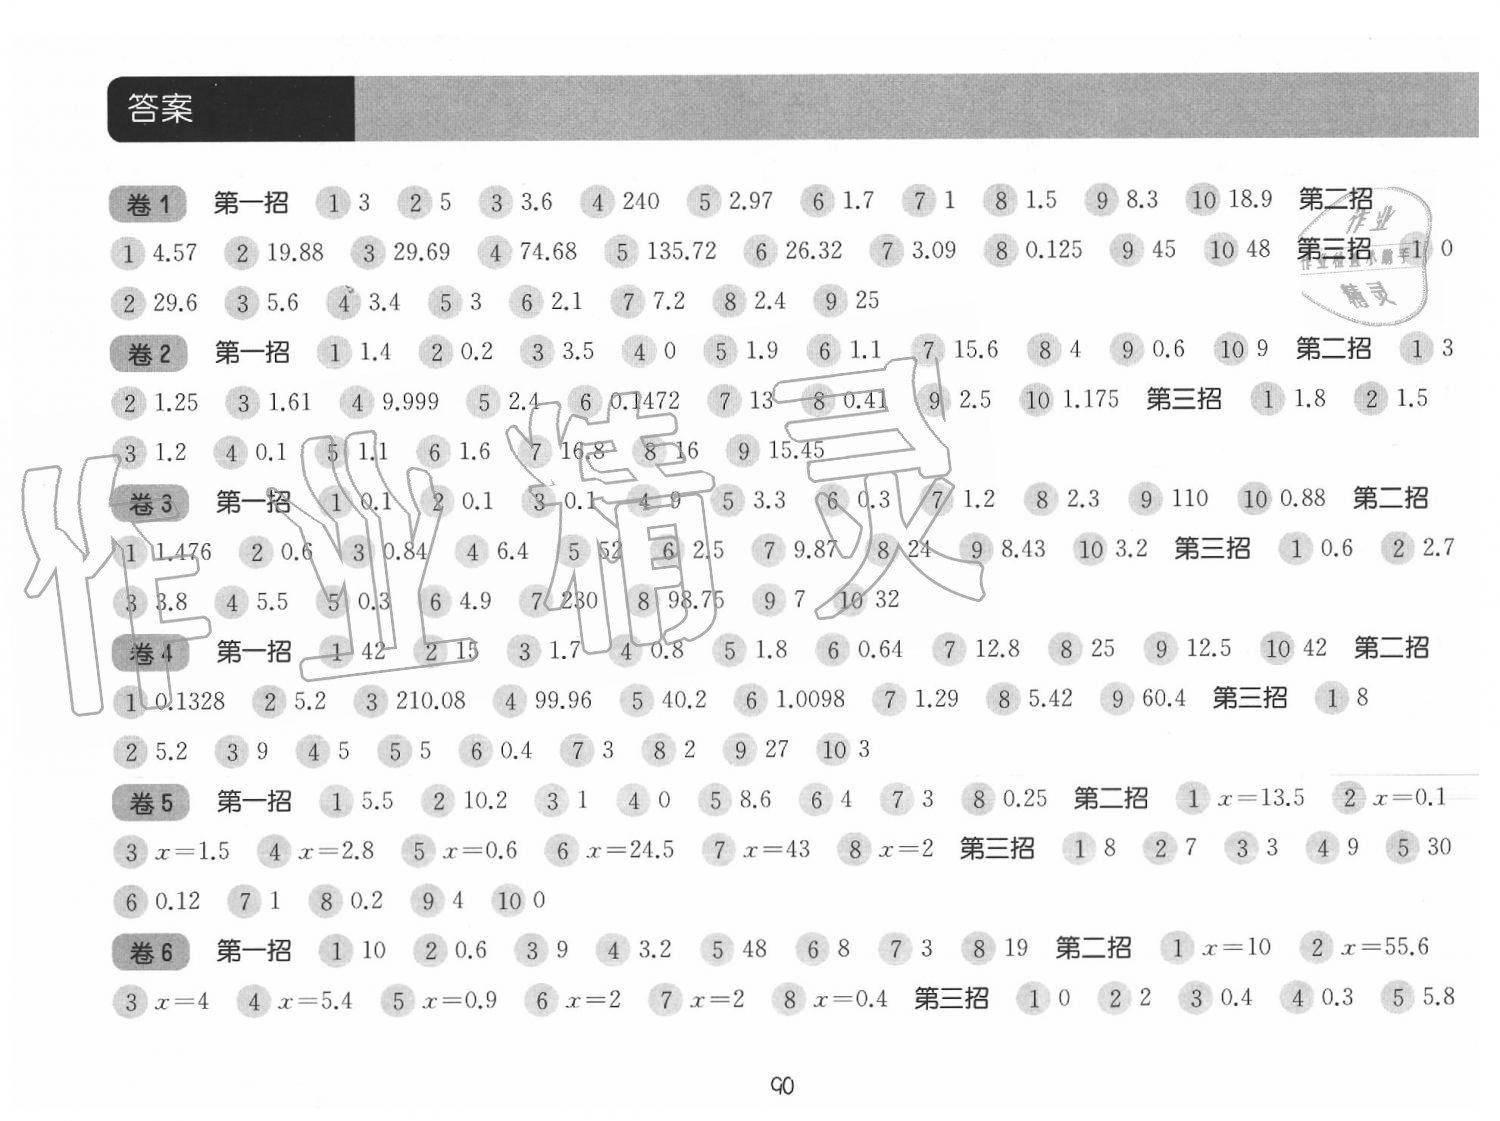 答案
卷1 第一招 1 3 2 5 3 3.6 4 240 5 2.97 6 1.7 7 1 8 1.5 9 8.3 10 18.9 第二招
1 4.57 2 19.88 3 29.69 4 74.68 5 135.72 6 26.32 7 3.09 8 0.125 9 45 10 48 第三招 1 0
2 29.6 3 5.6 4 3.4 5 3 6 2.1 7 7.2 8 2.4 9 25
卷2 第一招 1 1.4 2 0.2 3 3.5 4 0 5 1.9 6 1.1 7 15.6 8 4 9 0.6 10 9 第二招 1 3
2 1.25 3 1.61 4 9.999 5 2.4 6 0.1472 7 13 8 0.41 9 2.5 10 1.175 第三招 1 1.8 2 1.5
3 1.2 4 0.1 5 1.1 6 1.6 7 16.8 8 16 9 15.45
卷3 第一招 1 0.1 2 0.1 3 0.1 4 9 5 3.3 6 0.3 7 1.2 8 2.3 9 110 10 0.88 第二招
1 1.476 2 0.6 3 0.84 4 6.4 5 52 6 2.5 7 9.87 8 24 9 8.43 10 3.2 第三招 1 0.6 2 2.7
3 3.8 4 5.5 5 0.3 6 4.9 7 230 8 98.75 9 7 10 32
卷4 第一招 1 42 2 15 3 1.7 4 0.8 5 1.8 6 0.64 7 12.8 8 25 9 12.5 10 42 第二招
1 0.1328 2 5.2 3 210.08 4 99.96 5 40.2 6 1.0098 7 1.29 8 5.42 9 60.4 第三招 1 8
2 5.2 3 9 4 5 5 5 6 0.4 7 3 8 2 9 27 10 3
卷5 第一招 1 5.5 2 10.2 3 1 4 0 5 8.6 6 4 7 3 8 0.25 第二招 1 x=13.5 2 x=0.1
3 x=1.5 4 x=2.8 5 x=0.6 6 x=24.5 7 x=43 8 x=2 第三招 1 8 2 7 3 3 4 9 5 30
6 0.12 7 1 8 0.2 9 4 10 0
卷6 第一招 1 10 2 0.6 3 9 4 3.2 5 48 6 8 7 3 8 19 第二招 1 x=10 2 x=55.6
3 x=4 4 x=5.4 5 x=0.9 6 x=2 7 x=2 8 x=0.4 第三招 1 0 2 2 3 0.4 4 0.3 5 5.8
90
作业
作业检查小助手
精灵
作业精灵